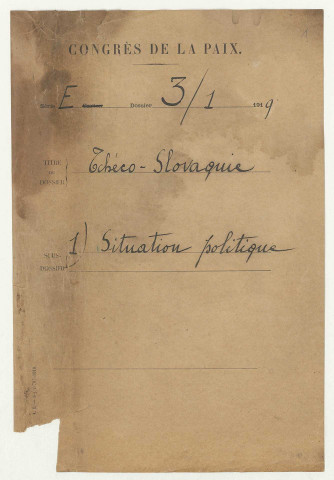 CONGRÈS DE LA PAIX.
E Dossier 3/1 1919
TITRE DU DOSSIER Tchéco-Slovaquie
SOUS-DOSSIER 1) Situation politique